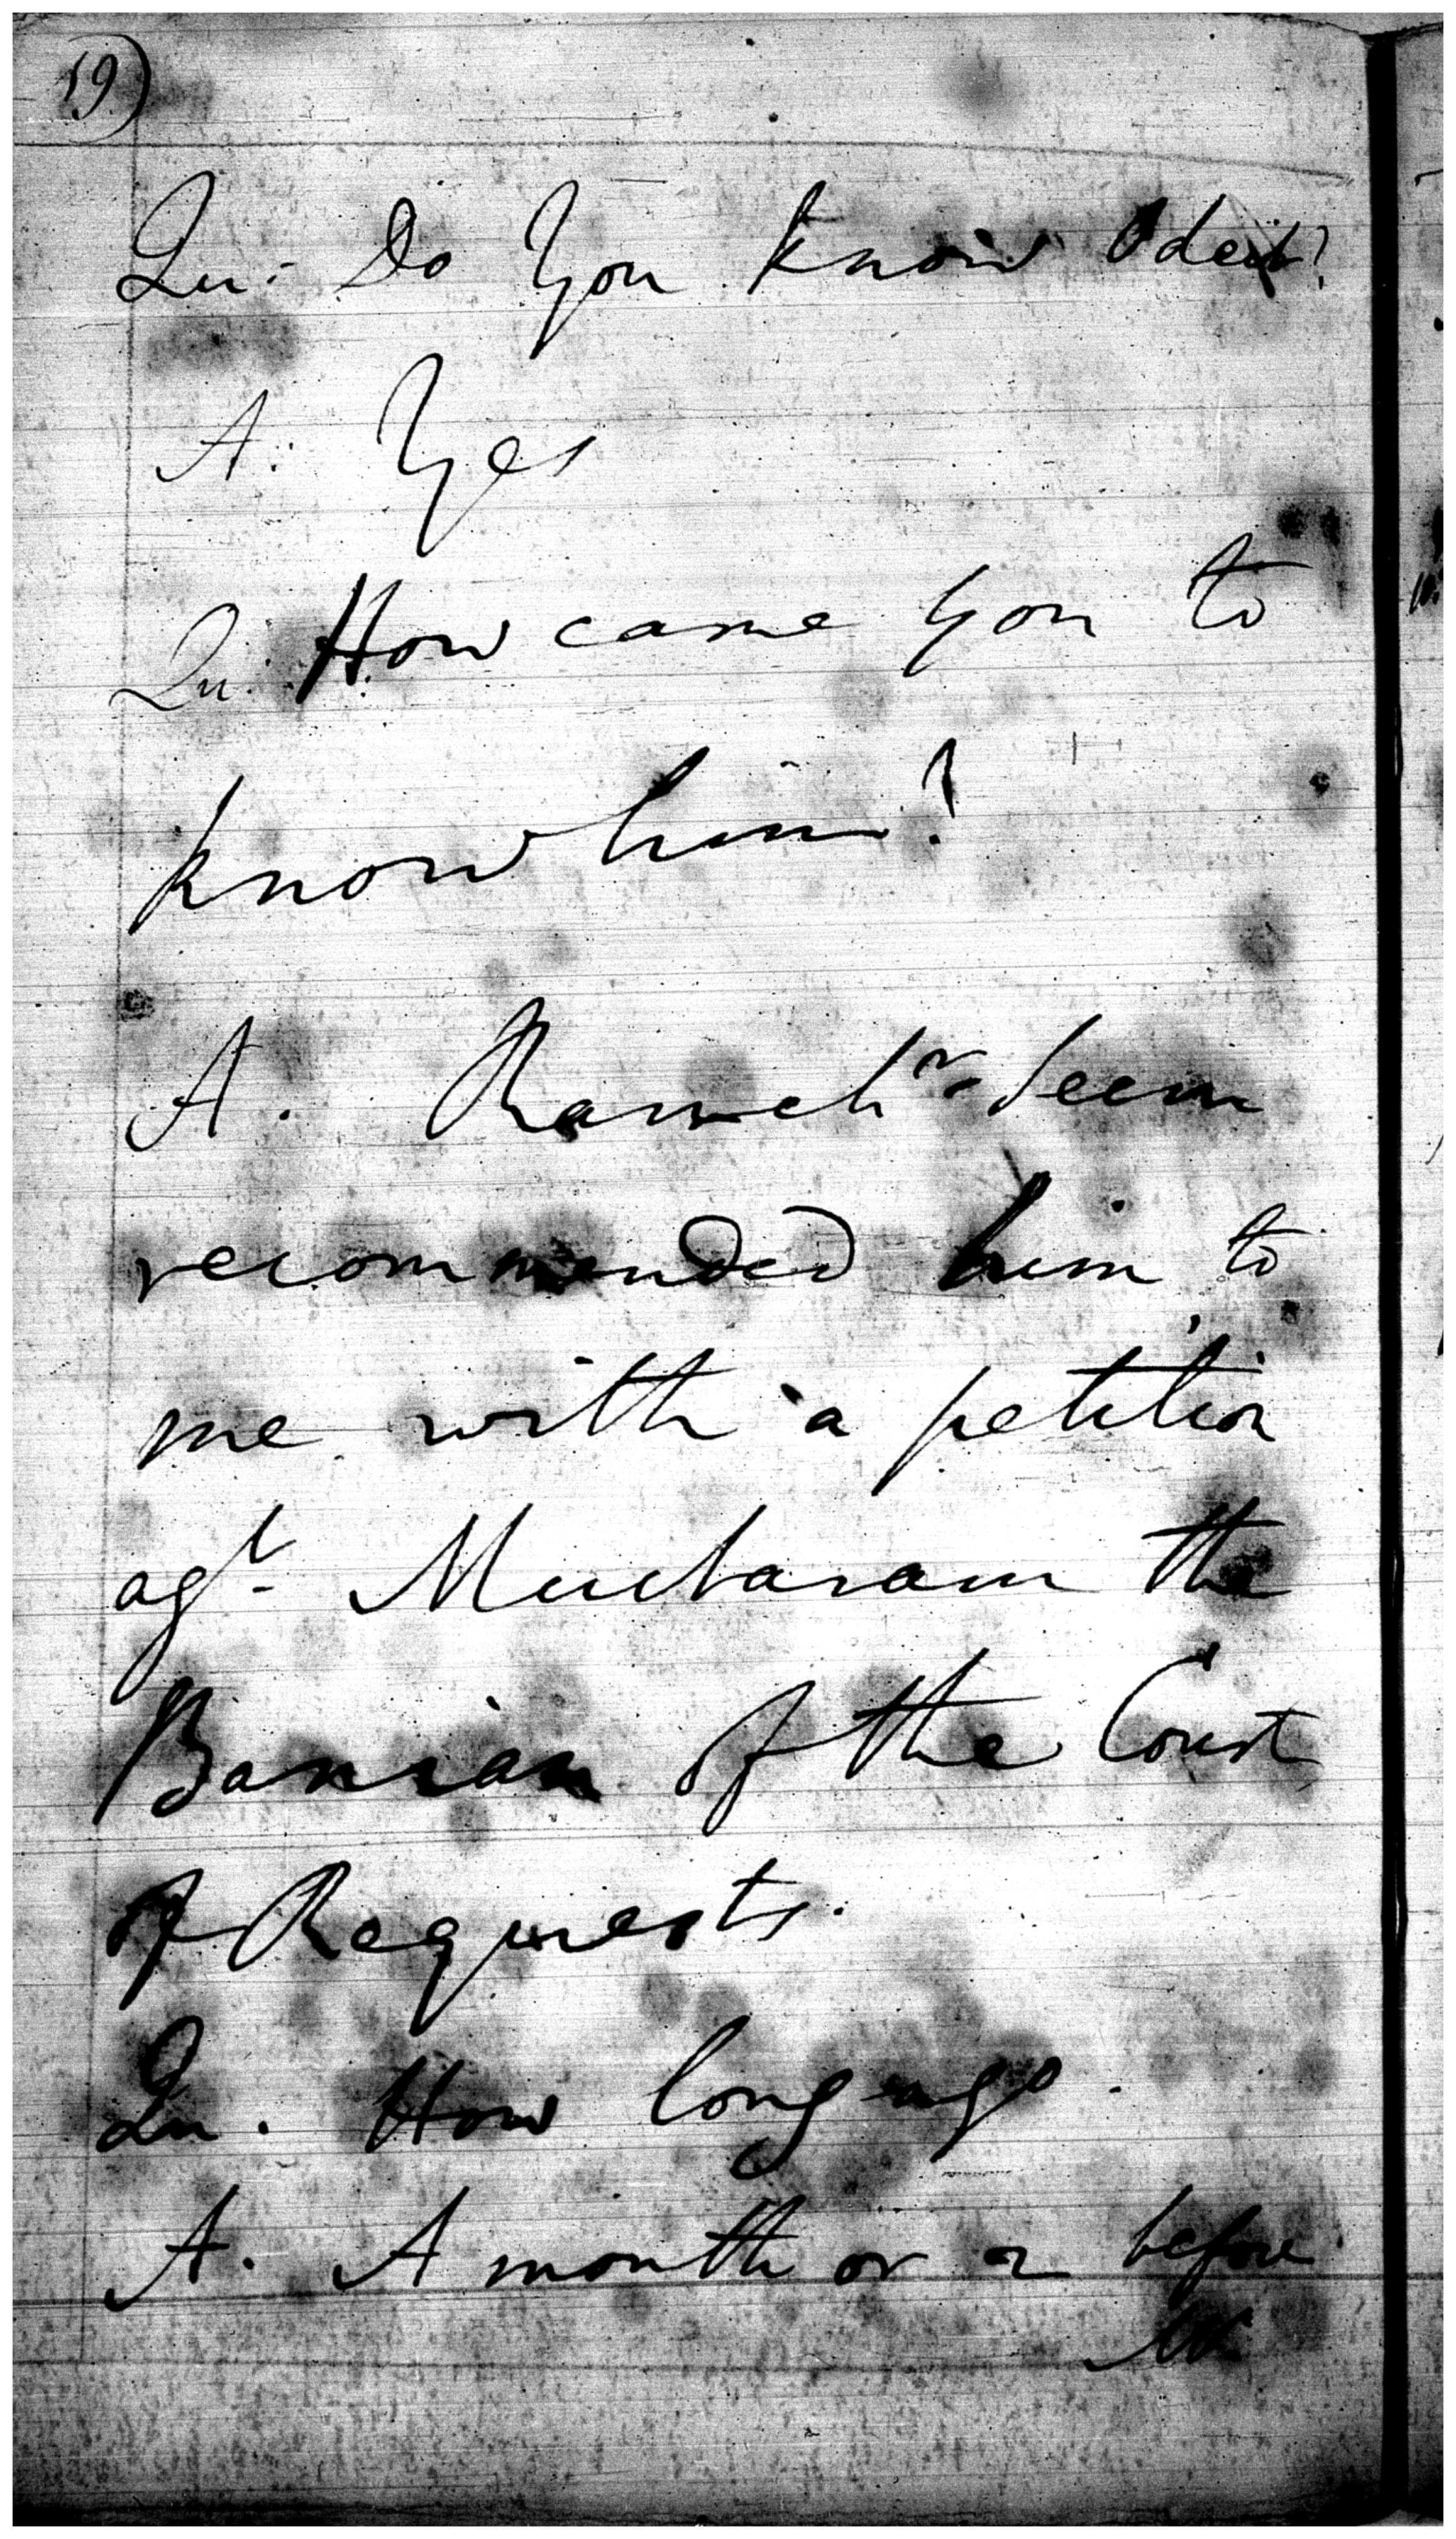 19)
Qu. Do You know Odeit?
A. Yes
Qu. How came you to
know him?
A. Ramchr Seem
recommended him to
me with a petition
agt. Muctaram the
Banian of the Court
of Requests.
Qu. How long ago.
A. A month or 2 before